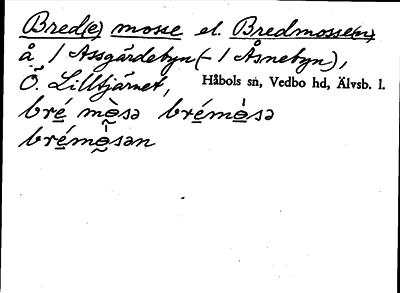 Bred(e) mosse el. Bredmosse(n)
å 1 Assgärdebyn (- 1 Åsnebyn),
Ö. Lilltjärnet, Håbols sn, Vedbo hd, Älvsb. l.
bré mòsə brémósə
brémósən